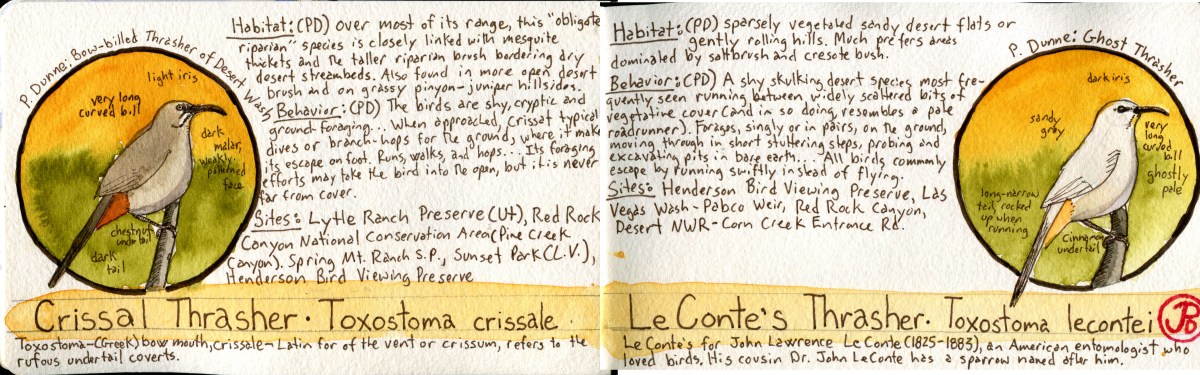 P. Dunne: Bow-billed Thrasher of Desert Wash
light iris
very long
curved bill
dark
malar,
weakly
patterned
face
chestnut
undertail
dark
tail
Habitat: (PD) over most of its range, this "obligate
riparian" species is closely linked with mesquite
thickets and the taller riparian brush bordering dry
desert streambeds. Also found in more open desert
brush and on grassy pinyon-juniper hillsides.
Behavior: (PD) The birds are shy, cryptic and
ground-foraging... When approached, Crissal typical
dives or branch-hops for the ground, where it make
its escape on foot. Runs, walks, and hops... Its foraging
efforts may take the bird into the open, but it is never
far from cover.
Sites: Lytle Ranch Preserve (Ut), Red Rock
Canyon National Conservation Area (Pine Creek
Canyon). Spring Mt. Ranch S.P., Sunset Park (L.V.),
Henderson Bird Viewing Preserve
Crissal Thrasher · Toxostoma crissale
Toxostoma-(Greek) bow mouth, crissale- Latin for of the vent or crissum, refers to the
rufous undertail coverts.
Habitat: (PD) sparsely vegetated sandy desert flats or
gently rolling hills. Much prefers areas
dominated by saltbrush and cresote bush.
Behavior: (PD) A shy skulking desert species most fre-
quently seen running between widely scattered bits of
vegetative cover (and in so doing, resembles a pale
roadrunner). Forages, singly or in pairs, on the ground,
moving through in short stuttering steps, probing and
excavating pits in bare earth... All birds commonly
escape by running swiftly instead of flying.
Sites: Henderson Bird Viewing Preserve, Las
Vegas Wash - Pabco Weir, Red Rock Canyon,
Desert NWR - Corn Creek Entrance Rd.
P. Dunne: Ghost Thrasher
dark iris
sandy
gray
very
long
curved
bill
ghostly
pale
long-narrow
tail, cocked
up when
running
Cinnamon
undertail
Le Conte's Thrasher · Toxostoma lecontei
JPD
Le Conte's for John Lawrence Le Conte (1825-1883), an American entomologist who
loved birds. His cousin Dr. John LeConte has a sparrow named after him.